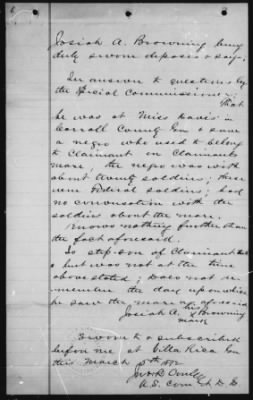 Josiah A. Browning being
duly sworn deposes & says,
In answer to questions by
the Special Commissioner:
That
he was at Miles Davis' in
Carroll County Geo & saw
a negro who used to belong
to Claimant on Claimants
mare, the negro was with
about twenty soldiers, these
were Federal soldiers; had
no conversation with the
soldiers about the mare.
Knows nothing further than
the fact aforesaid.
Is step-son of Claimant
& but was not at the time
above stated; does not re-
member the day upon which
he saw the mare as aforesaid
Josiah A. his x Browning
mark
Sworn to & subscribed
before me at Villa Rica Geo
this March 5th 18
U.S. Com